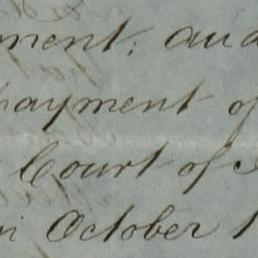 ment; and
payment of
Court of
in October 1